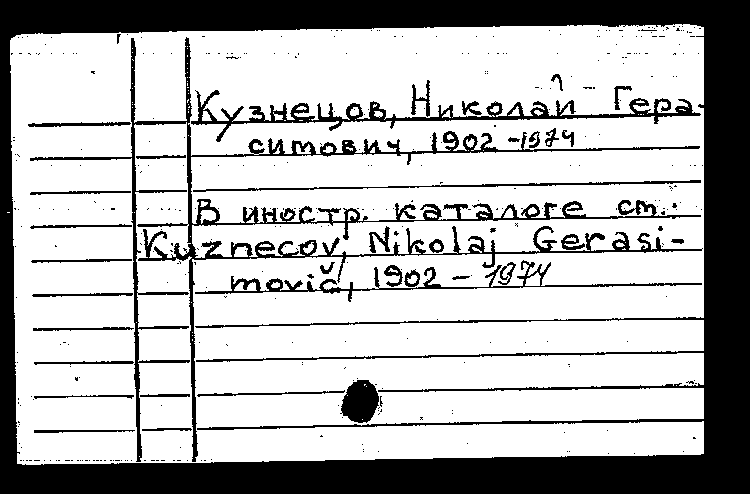 Кузнецов, Николай Гера-
симович, 1902-1974
В иностр. каталоге см.:
Kuznecov, Nikolaj Gerasi-
movič, 1902 - 1974